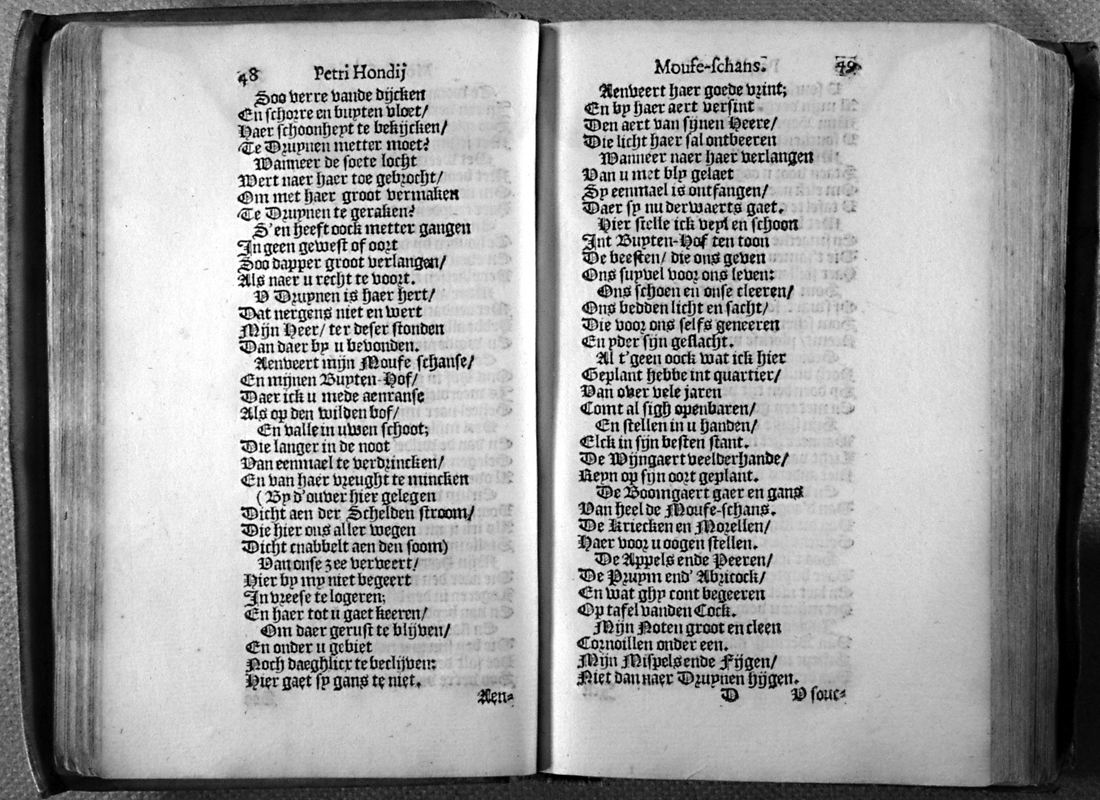 48 Petri Hondij
Soo verre vande dijcken
En schorre en buyten vloet/
Haer schoonheyt te bekijcken/
Te Druynen metter moet?
Wanneer de soete locht
Wert naer haer toe gebrocht/
Om met haer groot vermaken
Te Druynen te geraken?
S'en heeft oock metter gangen
In geen gewest of oort
Soo dapper groot verlangen/
Als naer u recht te voort.
V Druynen is haer hert/
Dat nergens niet en wert
Mijn Heer/ ter deser stonden
Dan daer by u bevonden.
Aenveert mijn Moufe schanse/
En mijnen Buyten-Hof/
Daer ick u mede aenranse
Als op den wilden bof/
En valle in uwen schoot;
Die langer in de noot
Van eenmael te verdrincken/
En van haer vreught te mincken
(By d'ouver hier gelegen
Dicht aen der Schelden stroom/
Die hier ons aller wegen
Dicht cnabbelt aen den soom)
Van onse zee verveert/
Hier by my niet begeert
In vreese te logeren;
En haer tot u gaet keeren/
Om daer gerust te blijven/
En onder u gebiet
Noch daeghlicx te beclijven:
Hier gaet sy gans te niet.
Aen-
Moufe-schans. 49
Aenveert haer goede vrint;
En by haer aert versint
Den aert van sijnen Heere/
Die licht haer sal ontbeeren
Wanneer naer haer verlangen
Van u met bly gelaet
Sy eenmael is ontfangen/
Daer sy nu derwaerts gaet.
Hier stelle ick veyl en schoon
Int Buyten-Hof ten toon
De beesten/ die ons geven
Ons suyvel voor ons leven:
Ons schoen en onse cleeren/
Ons bedden licht en sacht/
Die voor ons selfs geneeren
En yder sijn geslacht.
Al t'geen oock wat ick hier
Geplant hebbe int quartier/
Van over vele jaren
Comt al sigh openbaren/
En stellen in u handen/
Elck in sijn besten stant.
De Wijngaert veelderhande/
Reyn op sijn oort geplant.
De Boomgaert gaer en gans
Van heel de Moufe-schans.
De Kriecken en Morellen/
Haer voor u oogen stellen.
De Appels ende Peeren/
De Pruym end' Abricock/
En wat ghy cont begeeren
Op tafel vanden Cock.
Mijn Noten groot en cleen
Cornoillen onder een.
Mijn Mispels ende Fijgen/
Niet dan naer Druynen hijgen.
D V souc-